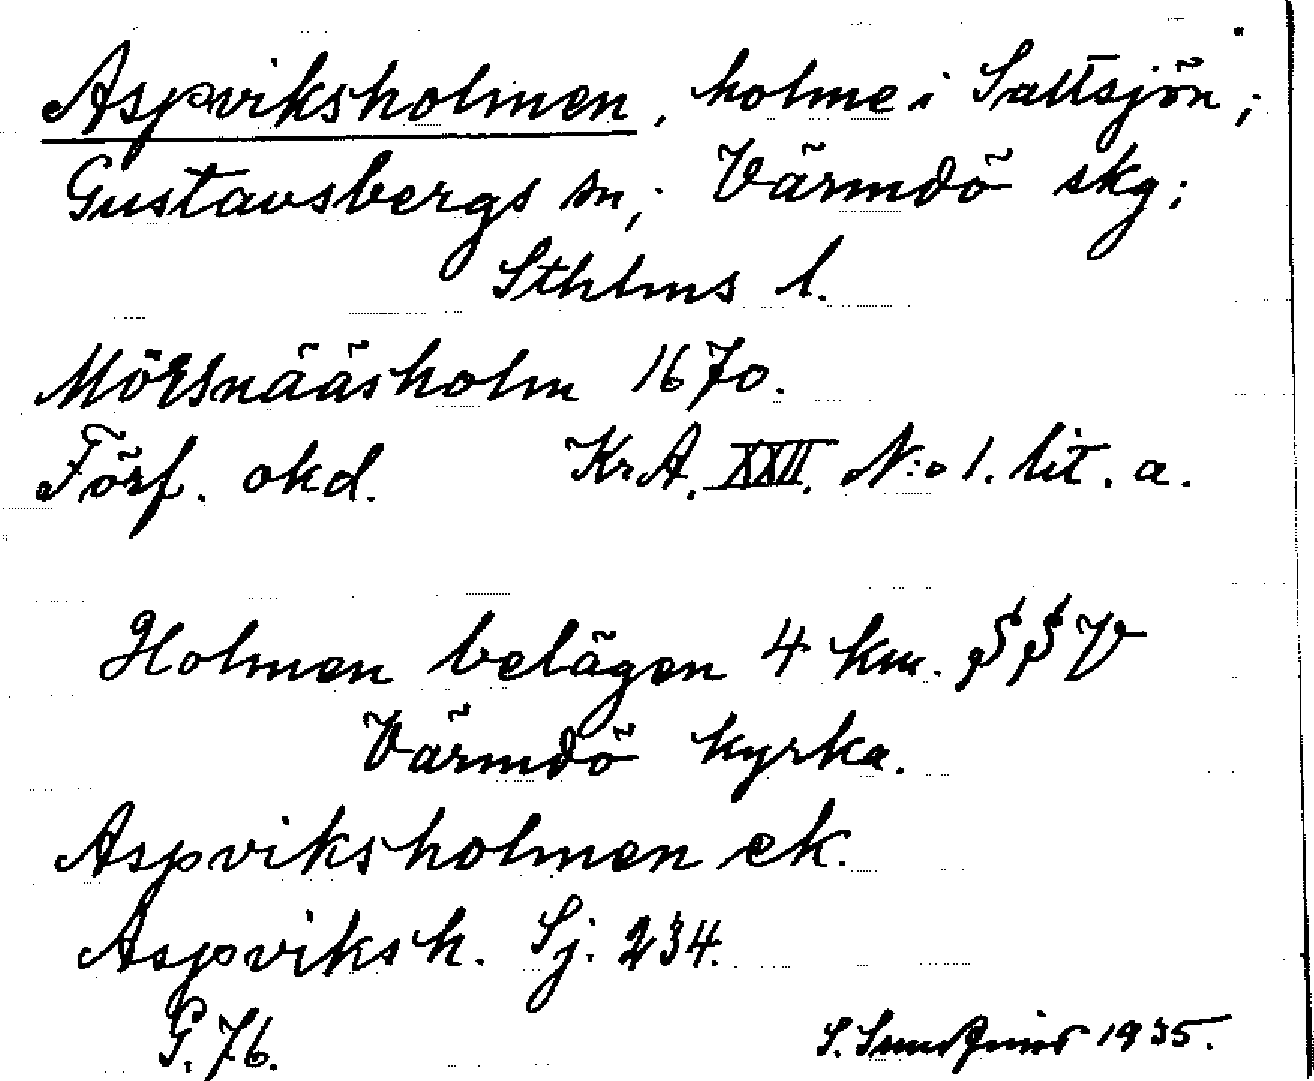 Aspviksholmen, holme i Saltsjön;
Gustavsbergs sn; Värmdö skg;
Sthlms l.
Mörsnääsholm 1670.
Förf. okd. Kr.A. XXII. N:o 1. lit. a.
Holmen belägen 4 km. SSV
Värmdö kyrka.
Aspviksholmen ek.
Aspviksh. Sj. 234.
G. 76.
S. 1935.